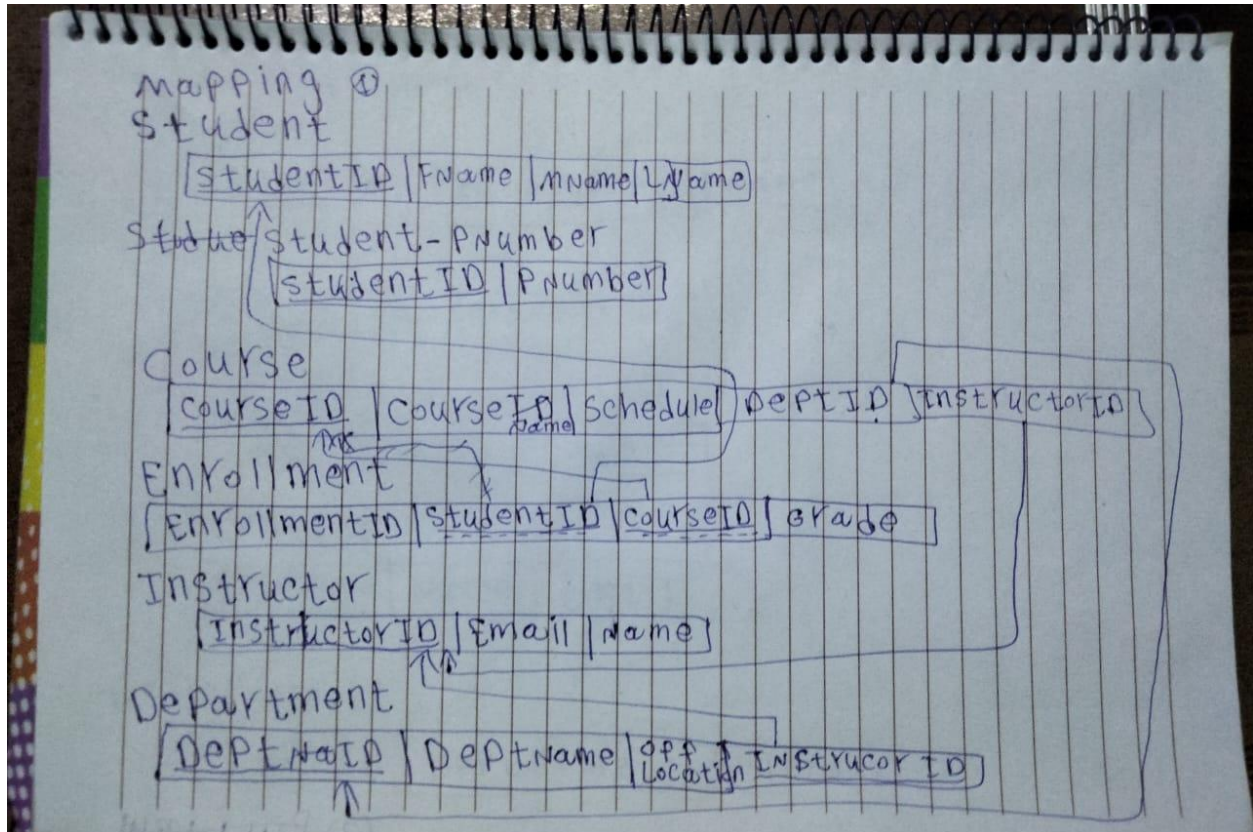 Mapping ①
Student
StudentID | FName | MName | LName
Student-PNumber
StudentID | PNumber
Course
CourseID | CourseName | Schedule | DeptID | InstructorID
Enrollment
EnrollmentID | StudentID | CourseID | Grade
Instructor
InstructorID | Email | Name
Department
DeptID | DeptName | Off Location | INstrucor ID